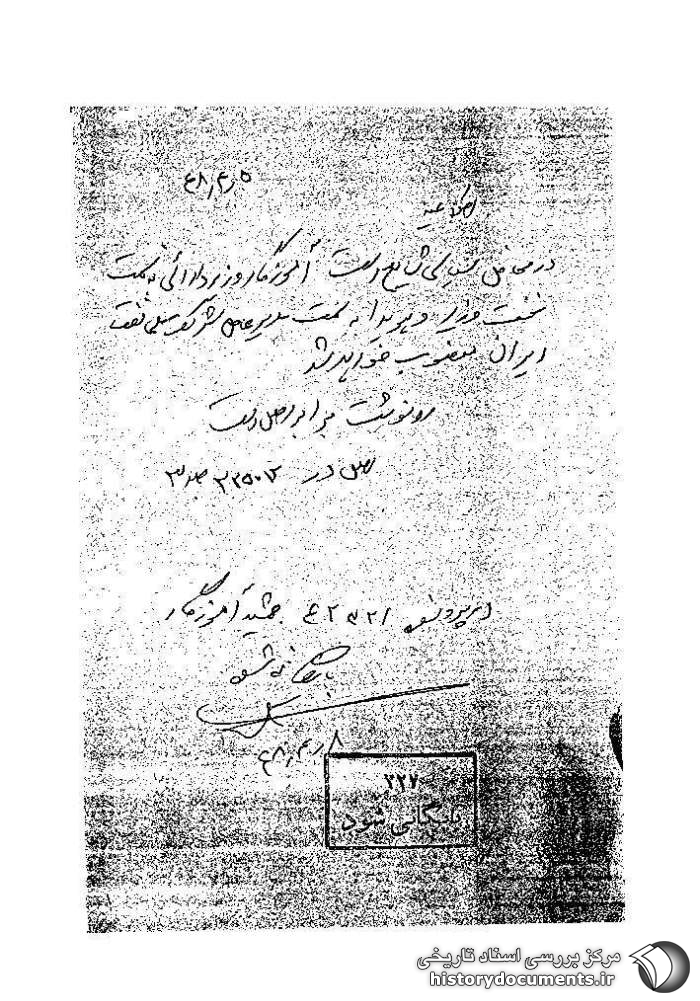 ۴۸٫۴٫۵
اطلاعیه
در محافل سیاسی شایع است آموزگار وزیر دارائی به سمت
نخست وزیر و هویدا به سمت مدیرعامل شرکت ملی نفت
ایران منصوب خواهد شد
رونوشت برابر اصل است
اصل در ۲۲۵۰۱۲ جلد ۳
در پرونده جمشید آموزگار
بایگانی شود
۴۸٫۴٫۸
۲۲۷
بایگانی شود
مرکز بررسی اسناد تاریخی
historydocuments.ir